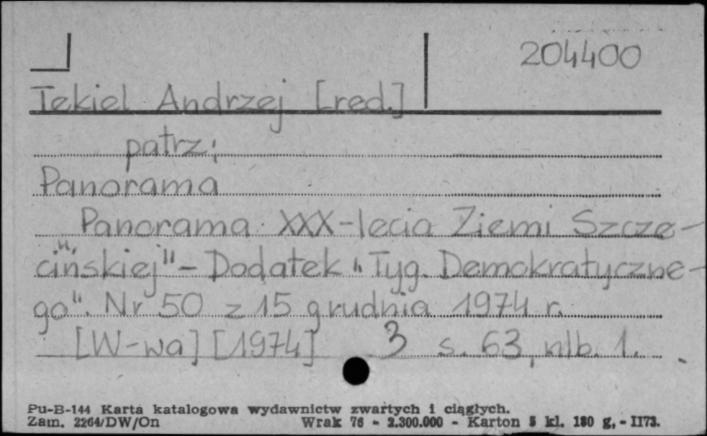 204400
Tekiel Andrzej [red.]
patrz:
Panorama
Panorama XXX-lecia Ziemi Szcze-
cińskiej" - Dodatek "Tyg. Demokratyczne-
go". Nr 50 z 15 grudnia 1974 r.
[W-wa] [1974] 3 s. 63, nlb. 1.
Pu-B-144 Karta katalogowa wydawnictw zwartych i ciągłych.
Zam. 2264/DW/On Wrak 76 - 2.300.000 - Karton 5 kl. 180 g, - II73.